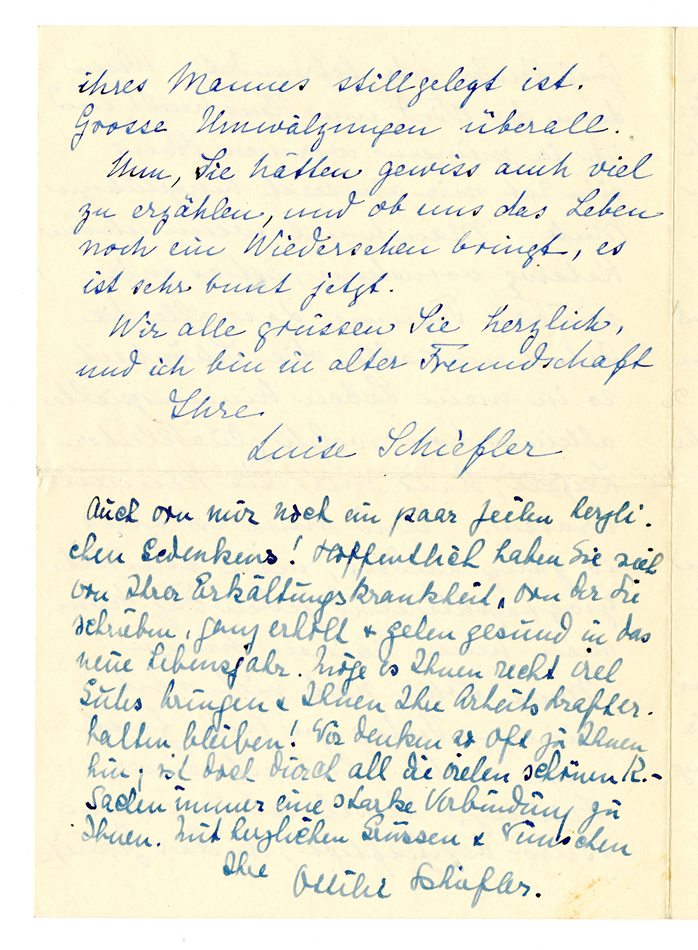 ihres Mannes stillgelegt ist.
Grosse Umwälzungen überall.
Nun, Sie hätten gewiss auch viel
zu erzählen, und ob uns das Leben
noch ein Wiedersehen bringt, es
ist sehr bunt jetzt.
Wir alle grüssen Sie herzlich,
und ich bin in alter Freundschaft
Ihre
Luise Schiefler
Auch von mir noch ein paar Zeilen herzli-
chen Gedenkens! Hoffentlich haben Sie sich
von Ihrer Erkältungskrankheit, von der Sie
schrieben, ganz erholt & gehen gesund in das
neue Lebensjahr. Möge es Ihnen recht viel
Gutes bringen & Ihnen Ihre Arbeitskraft er-
halten bleiben! Wir denken so oft zu Ihnen
hin; ist doch durch all die vielen schönen K.-
Sachen immer eine starke Verbindung zu
Ihnen. Mit herzlichen Grüssen & Wünschen
Ihre Ottilie Schiefler.